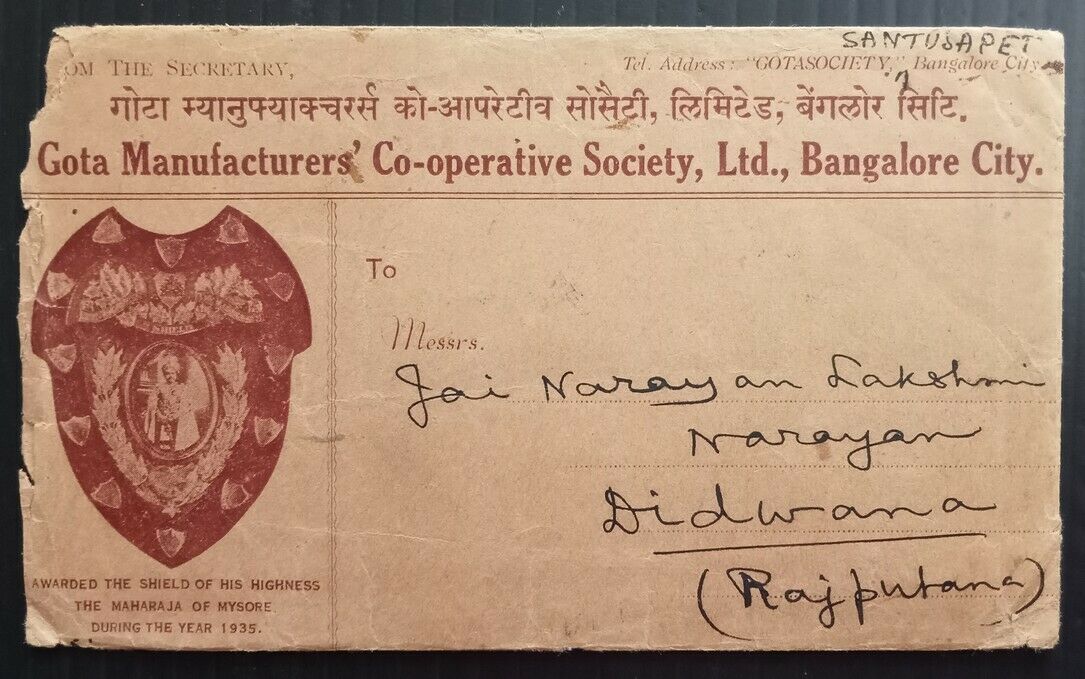 SANTUSAPET
OM THE SECRETARY,
Tel. Address: "GOTASOCIETY," Bangalore City.
गोटा म्यानुफ्याक्चरर्स को-आपरेटीव सोसैटी, लिमिटेड, बेंगलोर सिटि.
Gota Manufacturers' Co-operative Society, Ltd., Bangalore City.
To
Messrs.
Jai Narayan Lakshmi
Narayan
Didwana
(Rajputana)
AWARDED THE SHIELD OF HIS HIGHNESS
THE MAHARAJA OF MYSORE
DURING THE YEAR 1935.